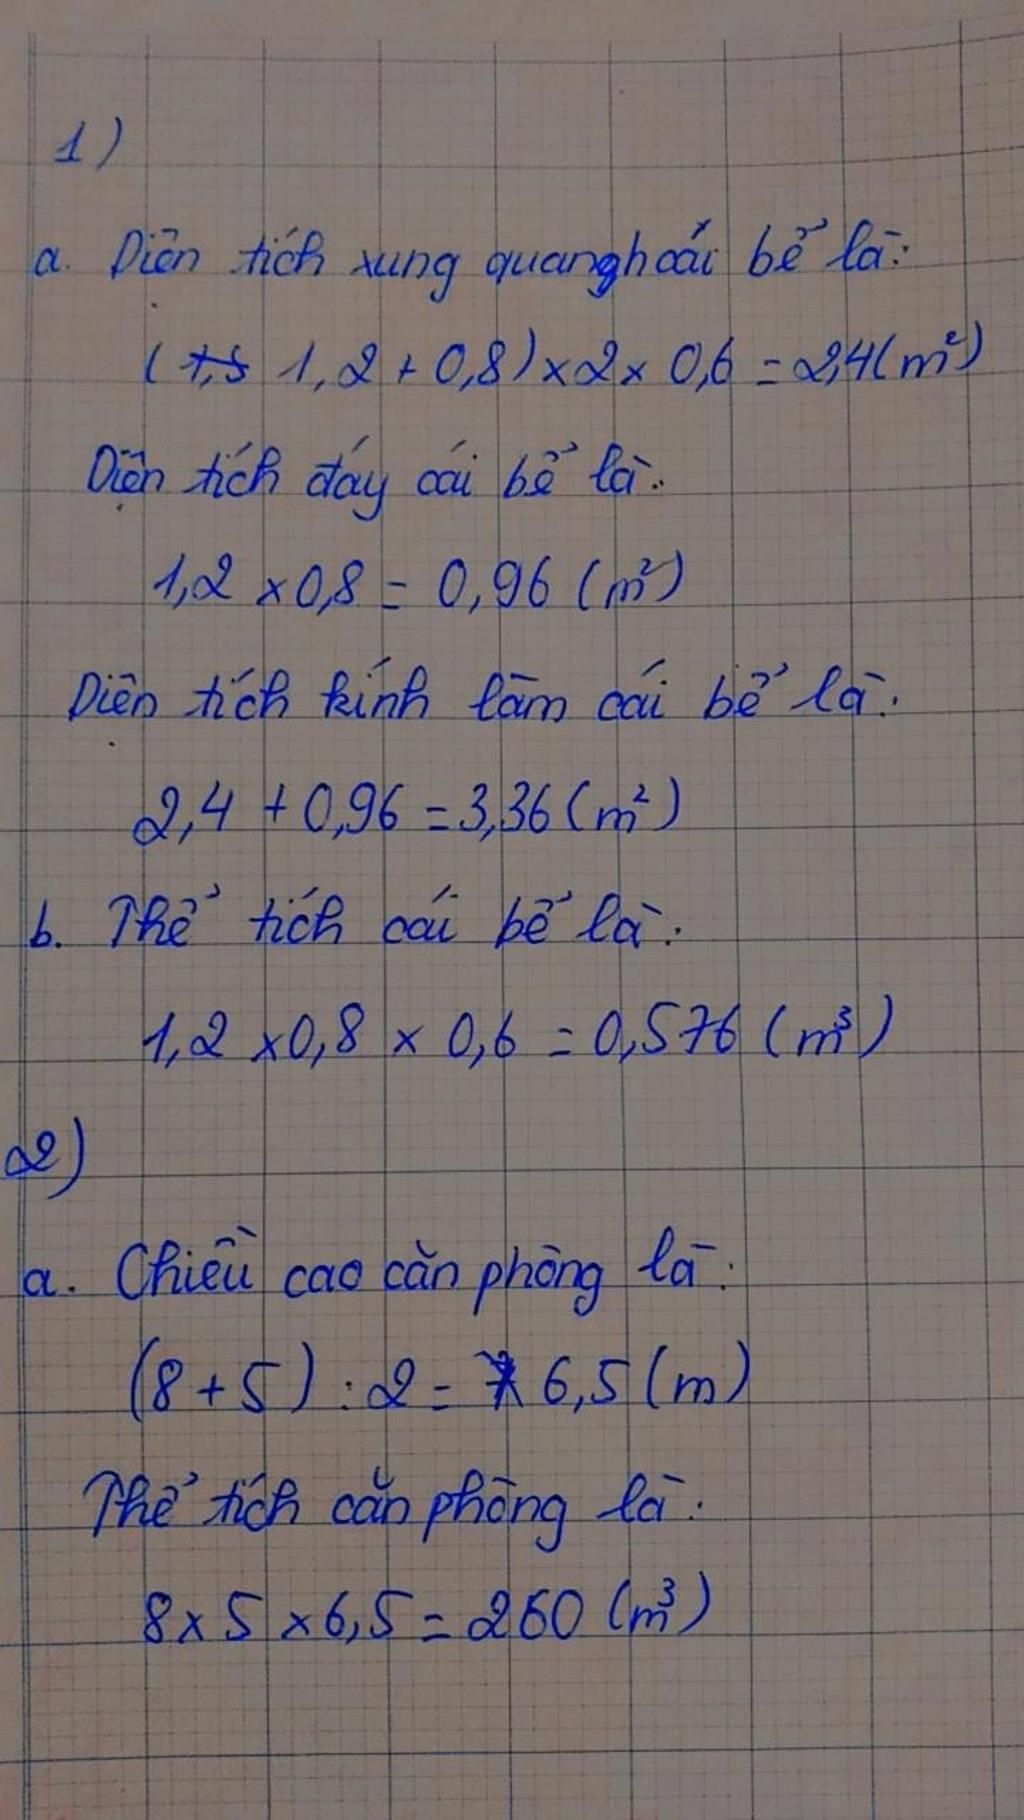 1)
a. Diện tích xung quanh cái bể là:
(1,5 1,2 + 0,8) x 2 x 0,6 = 2,4 (m²)
Diện tích đáy cái bể là:
1,2 x 0,8 = 0,96 (m²)
Diện tích kính làm cái bể là:
2,4 + 0,96 = 3,36 (m²)
b. Thể tích cái bể là:
1,2 x 0,8 x 0,6 = 0,576 (m³)
2)
a. Chiều cao căn phòng là:
(8 + 5) : 2 = 6,5 (m)
Thể tích căn phòng là:
8 x 5 x 6,5 = 260 (m³)